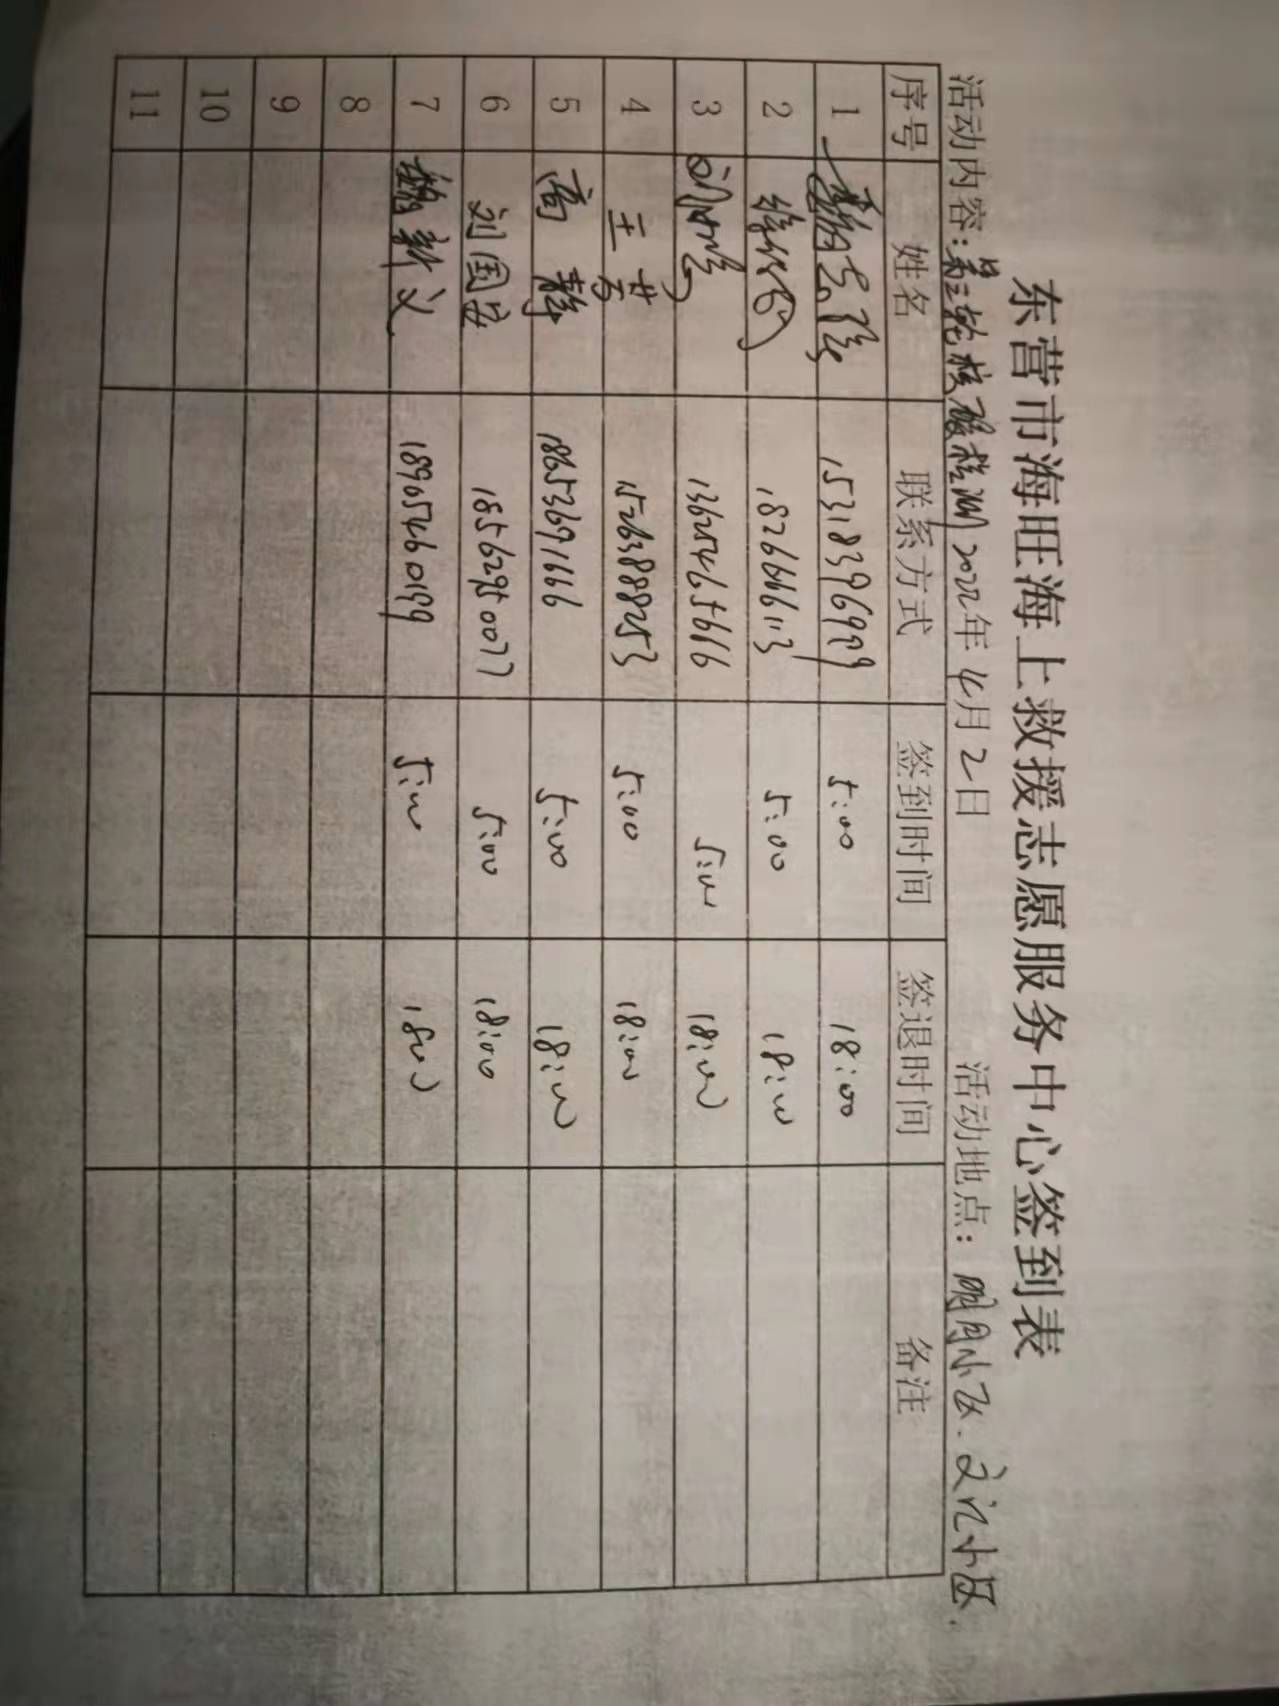 东营市海旺海上救援志愿服务中心签到表
活动内容：第三轮核酸检测 2022年4月2日 活动地点：明月小区.文汇小区.
序号 姓名 联系方式 签到时间 签退时间 备注
1 15318396999 5:00 18:00
2 5:00 18:00
3 13625465616 5:00 18:00
4 王芳 15263888253 5:00 18:00
5 高静 18653691666 5:00 18:00
6 刘国安 18562950077 5:00 18:00
7 新义 18905460199 5:00 1800
8
9
10
11